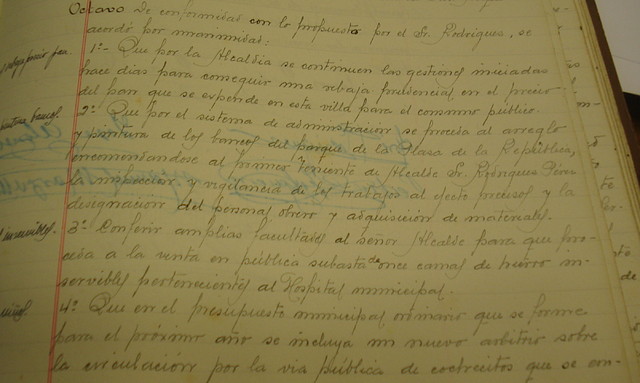 Octavo De conformidad con lo propuesto por el Sr. Rodrigues, se
acordó por unanimidad:
1º- Que por la Alcaldia se continuen las gestiones iniciadas
hace dias para conseguir una rebaja prudencial en el precio
del pan que se expende en esta villa para el consumo público.
2º- Que por el sistema de administración se proceda al arreglo
y pintura de los bancos del parque de la Plaza de la República,
encomendandose al primer Teniente de Alcalde Sr. Rodrigues Peres
la inspección y vigilancia de los trabajos al efecto precisos y la
designación del personal obrero y adquisición de materiales.
3º- Conferir amplias facultades al señor Alcalde para que pro-
ceda a la venta en pública subasta de once camas de hierro in-
servibles pertenecientes al Hospital municipal.
4º- Que en el presupuesto municipal ordinario que se forme
para el próximo año se incluya un nuevo arbitrio sobre
la circulación por la via pública de cochecitos que se con-